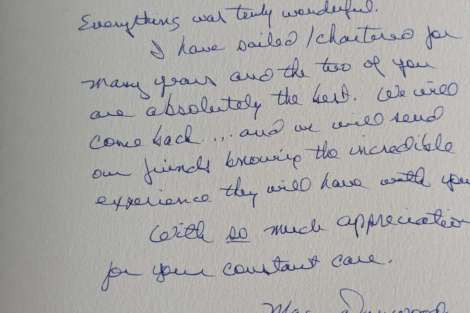 Everything was truly wonderful.
I have sailed/chartered for
many years and the two of you
are absolutely the best. We will
come back ... and we will send
our friends knowing the incredible
experience they will have with you
With so much appreciation
for your constant care.